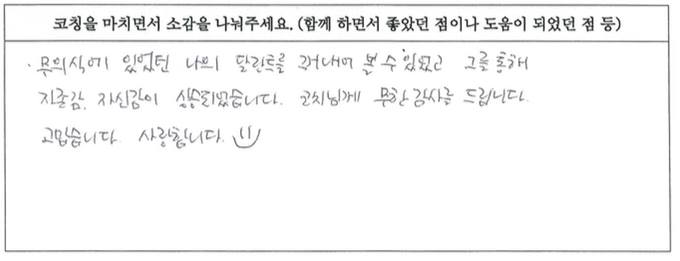 코칭을 마치면서 소감을 나눠주세요. (함께 하면서 좋았던 점이나 도움이 되었던 점 등)
· 무의식에 있었던 나의 달란트를 꺼내어 볼 수 있었고 그를 통해
자존감, 자신감이 상승되었습니다. 코치님께 무한 감사를 드립니다.
고맙습니다. 사랑합니다. :)